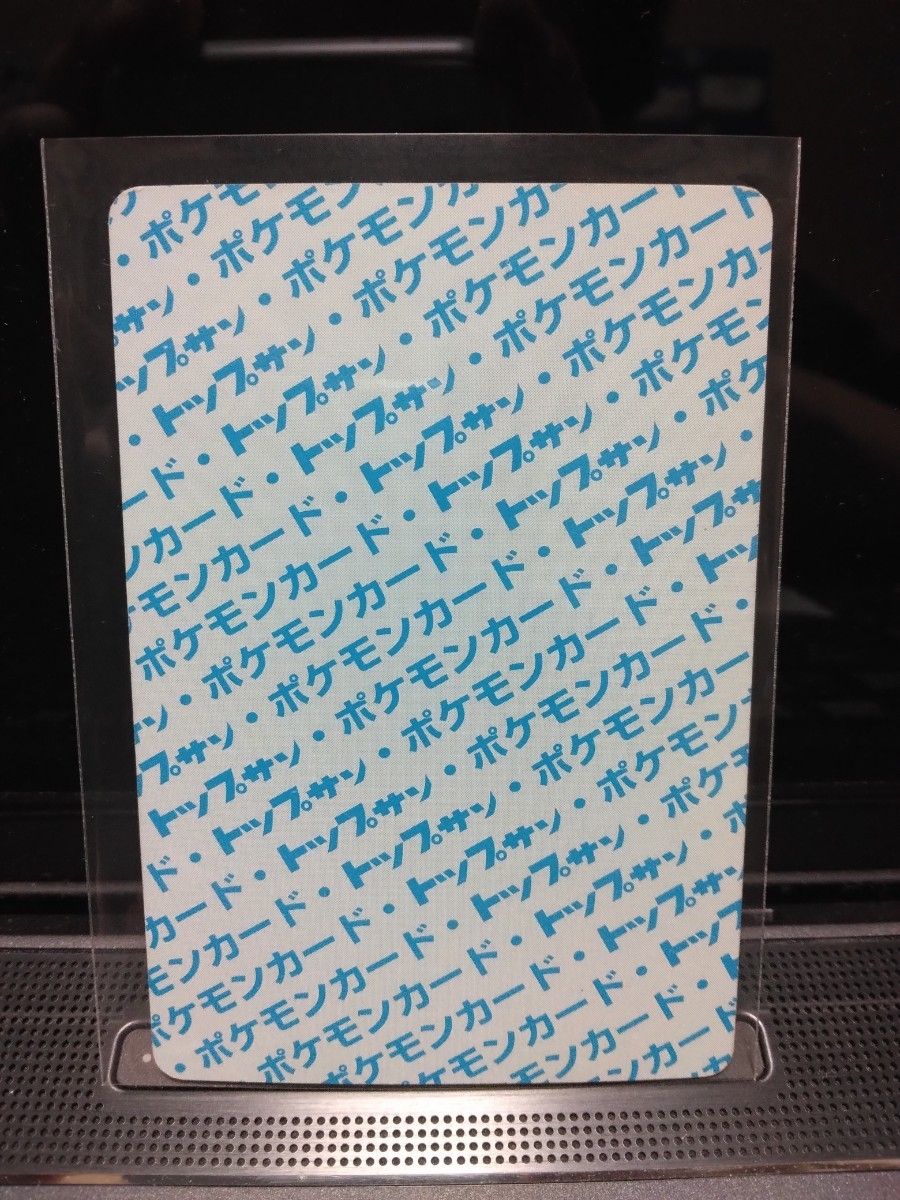 ・ポケモン
サン・ポケモン
ップサン・ポケモンカ
・トップサン・ポケモンカー
ード・トップサン・ポケモンカー
ンカード・トップサン・ポケモンカード
モンカード・トップサン・ポケモンカー
ポケモンカード・トップサン・ポケモン
サン・ポケモンカード・トップサン・ポケ
プサン・ポケモンカード・トップサン・
トップサン・ポケモンカード・トップサ
ド・トップサン・ポケモンカード・トッ
カード・トップサン・ポケモンカード・
モンカード・トップサン・ポケモンカー
ポケモンカード・トップサン・ポケモン
・ポケモンカード・トップサン・ポケ
ポケモンカード・トップサン・ポ
ケモンカード・トップサン
モンカード・トッ
ンカード